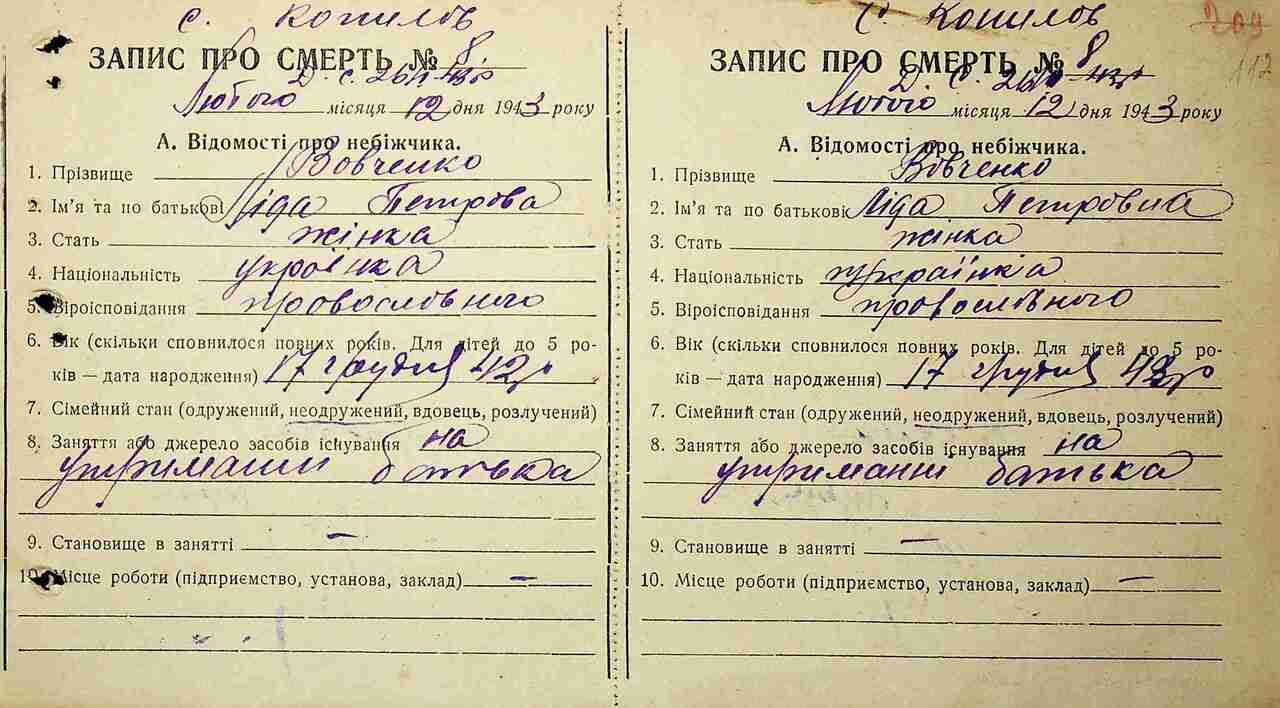 с. Копилов
ЗАПИС ПРО СМЕРТЬ № 8
Д. с. 26/II-43р
Лютого місяця 12 дня 1943 року
А. Відомості про небіжчика.
1. Прізвище Вовченко
2. Ім'я та по батькові Ліда Петрова
3. Стать жінка
4. Національність українка
5. Віроісповідання провославного
6. Вік (скільки сповнилося повних років. Для дітей до 5 ро-
ків — дата народження) 17 грудня 42р
7. Сімейний стан (одружений, неодружений, вдовець, розлучений)
8. Заняття або джерело засобів існування на
утриманні батька
9. Становище в занятті —
10. Місце роботи (підприємство, установа, заклад) —
с. Копилов
209
ЗАПИС ПРО СМЕРТЬ № 8
112
Д. с. 26/II-43р
Лютого місяця 12 дня 1943 року
А. Відомості про небіжчика.
1. Прізвище Вовченко
2. Ім'я та по батькові Ліда Петровна
3. Стать жінка
4. Національність Українка
5. Віроісповідання провославного
6. Вік (скільки сповнилося повних років. Для дітей до 5 ро-
ків — дата народження) 17 грудня 42р
7. Сімейний стан (одружений, неодружений, вдовець, розлучений)
8. Заняття або джерело засобів існування на
утриманні батька
9. Становище в занятті —
10. Місце роботи (підприємство, установа, заклад) —